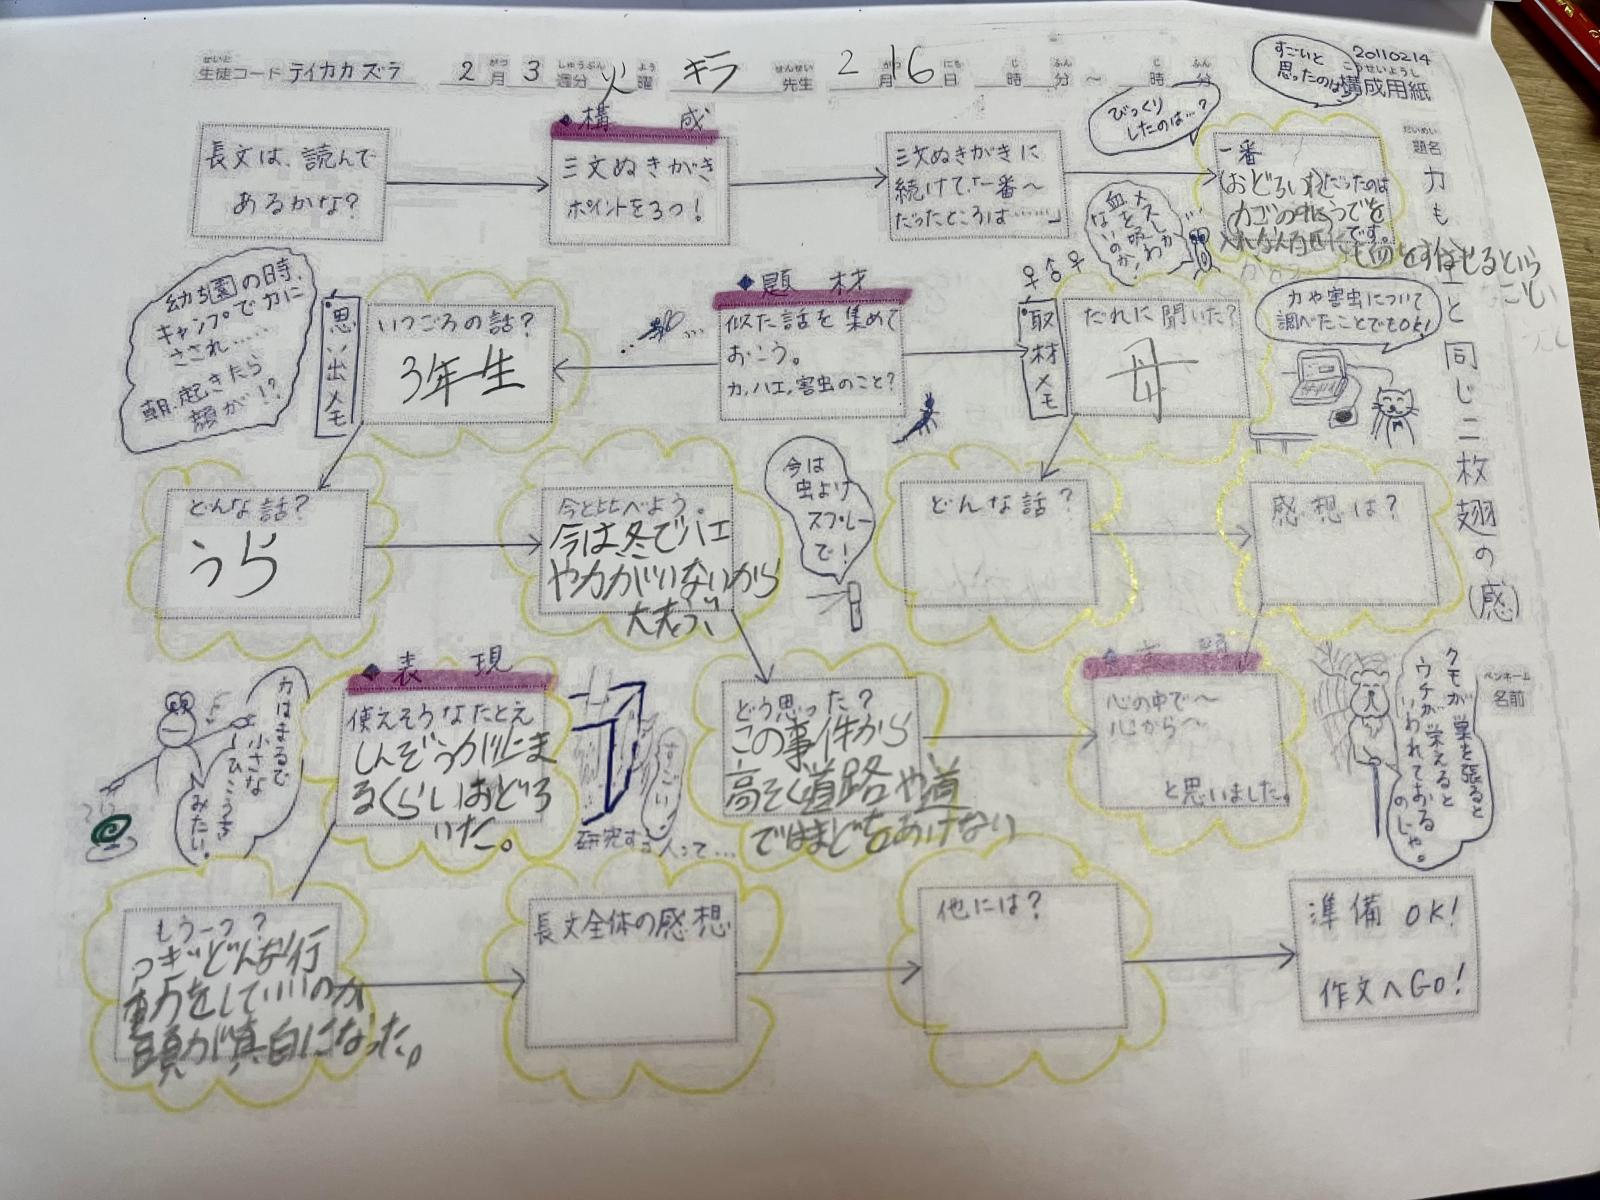 生徒コード テイカカズラ 2月 3週分 火曜 キラ先生 2月16日 時 分 ～ 時 分
20110214
構成用紙
すごいと
思ったのは
題名
カも
と同じ二枚翅の(感)
ペンネーム
名前
長文は、読んで
あるかな？
◆構 成
三文ぬきがき
ポイントを3つ！
三文ぬきがきに
続けて、「一番～
だったところは……」
びっくり
したのは…？
一番
(おどろいた)だったのは
カゴの中にうでを
です。
を
すわせるという
メスしか
血を吸わ
ないのか！
♀♂♀
◆題 材
似た話を集めて
おこう。
カ,ハエ,害虫のこと？
思い出メモ
いつごろの話？
3年生
幼ち園の時、
キャンプでカに
さされ……
朝、起きたら
顔が！？
取材メモ
だれに聞いた？
母
カや害虫について
調べたことでもOK！
どんな話？
うら
今と比べよう。
今は冬でハエ
やカがいないから
大丈夫
今は
虫よけ
スプレー
で！
どんな話？
感想は？
◆表 現
使えそうなたとえ
しんぞうが止ま
るくらいおどろ
いた。
カはまるで
小さな
ひこうき
みたい。
すごい！
研究する人って…
どう思った？
この事件から
高そく道路や道
ではまどをあけない
◆主 題
心の中で～
心から～
と思いました。
クモが巣を張ると
ウチが栄えると
いわれておる
のじゃ。
もう一つ？
つぎどんな行
動をしていいのか
頭が真白になった。
長文全体の感想
他には？
準備 OK！
作文へGO！